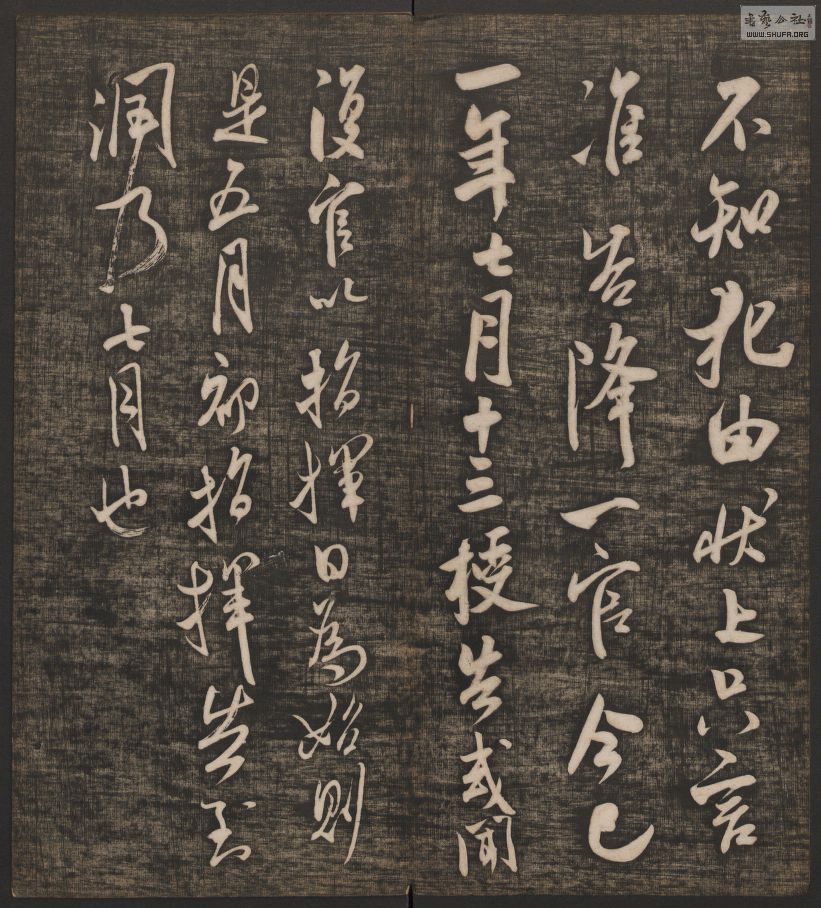 不知犯由状上只言
准告降一官今已
一年七月十三授告或聞
復官以指揮日為始則
是五月初指揮告到
潤乃七月也
書藝公社
WWW.SHUFA.ORG